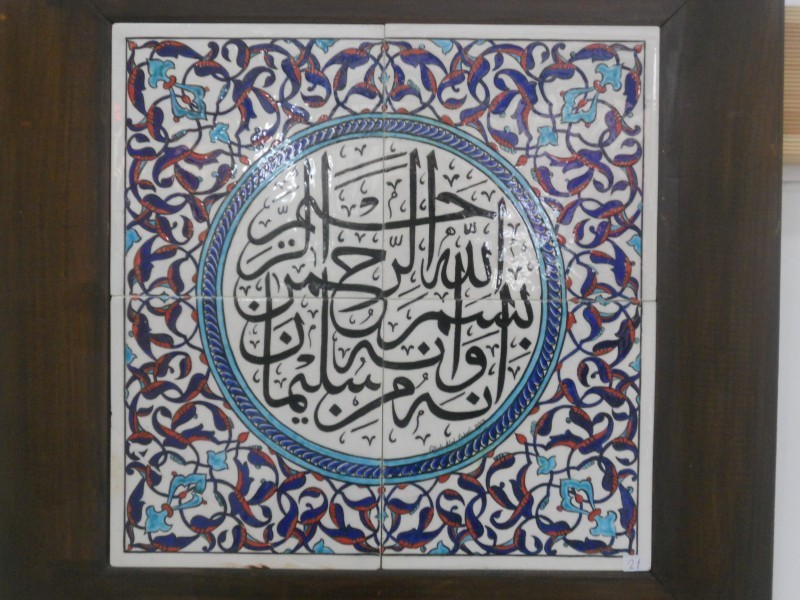 انه من سليمان
وانه
بسم الله الرحمن
الرحيم
21